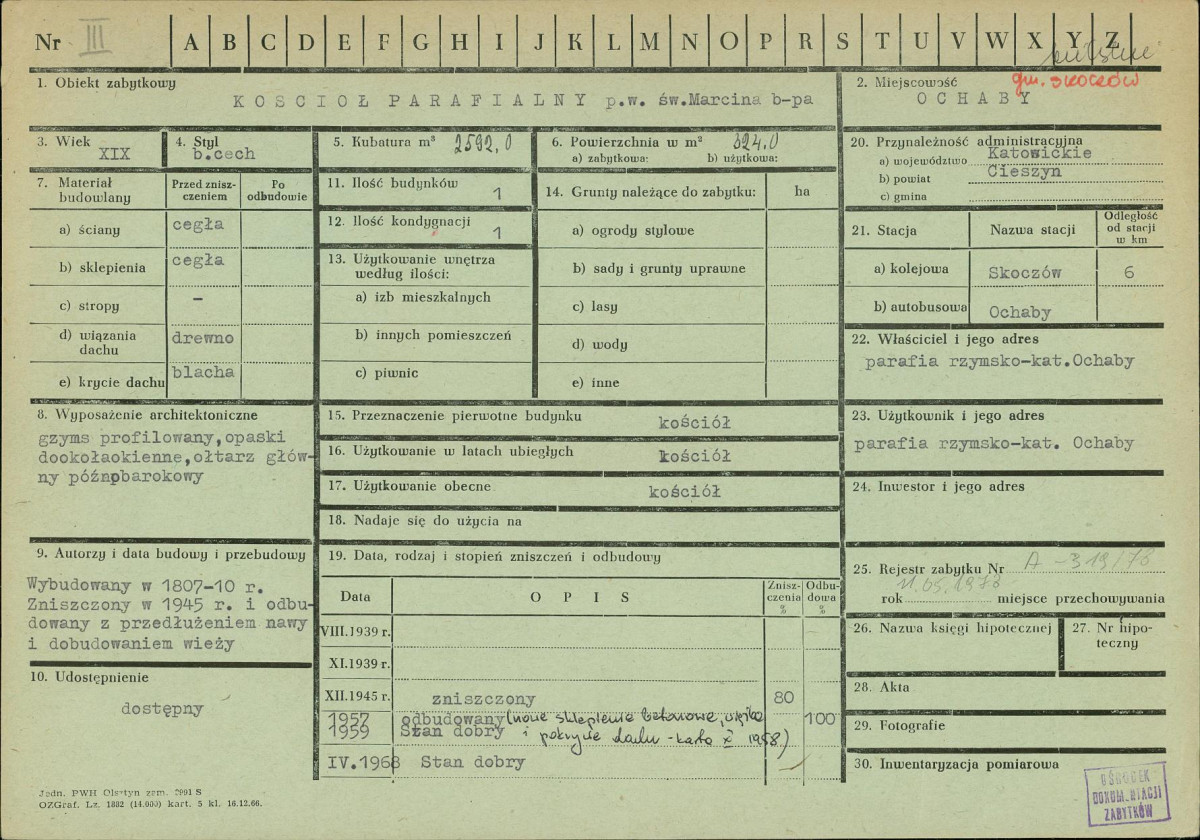 Nr III A B C D E F G H I J K L M N O P R S T U V W X Y Z
gm. SKOCZÓW
1. Obiekt zabytkowy
KOSCIOŁ PARAFIALNY p.w. św.Marcina b-pa
2. Miejscowość
OCHABY
3. Wiek
XIX
4. Styl
b.cech
5. Kubatura m³ 2592,0
6. Powierzchnia w m² 324.0
a) zabytkowa: b) użytkowa:
20. Przynależność administracyjna
a) województwo Katowickie
b) powiat Cieszyn
c) gmina
7. Materiał budowlany
Przed zniszczeniem
Po odbudowie
a) ściany cegła
b) sklepienia cegła
c) stropy –
d) wiązania dachu drewno
e) krycie dachu blacha
11. Ilość budynków 1
12. Ilość kondygnacji 1
13. Użytkowanie wnętrza
według ilości:
a) izb mieszkalnych
b) innych pomieszczeń
c) piwnic
14. Grunty należące do zabytku: ha
a) ogrody stylowe
b) sady i grunty uprawne
c) lasy
d) wody
e) inne
21. Stacja Nazwa stacji
Odległość
od stacji
w km
a) kolejowa Skoczów 6
b) autobusowa Ochaby
22. Właściciel i jego adres
parafia rzymsko-kat.Ochaby
8. Wyposażenie architektoniczne
gzyms profilowany,opaski
dookołaokienne,ołtarz głów-
ny późnobarokowy
15. Przeznaczenie pierwotne budynku kościół
16. Użytkowanie w latach ubiegłych kościół
17. Użytkowanie obecne kościół
18. Nadaje się do użycia na
23. Użytkownik i jego adres
parafia rzymsko-kat. Ochaby
24. Inwestor i jego adres
9. Autorzy i data budowy i przebudowy
Wybudowany w 1807-10 r.
Zniszczony w 1945 r. i odbu-
dowany z przedłużeniem nawy
i dobudowaniem wieży
10. Udostępnienie
dostępny
19. Data, rodzaj i stopień zniszczeń i odbudowy
Data OPIS
Znisz-
czenia
%
Odbu-
dowa
%
VIII.1939 r.
XI.1939 r.
XII.1945 r. zniszczony 80
1957 odbudowany (nowe sklepienie betonowe, więźba 100
1959 Stan dobry i pokrycie dachu - karta z 1958)
IV.1968 Stan dobry –
25. Rejestr zabytku Nr A-319/78
11.05.1978
rok miejsce przechowywania
26. Nazwa księgi hipotecznej
27. Nr hipo-
teczny
28. Akta
29. Fotografie
30. Inwentaryzacja pomiarowa
Jedn. PWH Olsztyn zam. 2991 S
OZGraf. Lz. 1882 (14.000) kart. 5 kl. 16.12.66.
OŚRODEK
DOKUMENTACJI
ZABYTKÓW